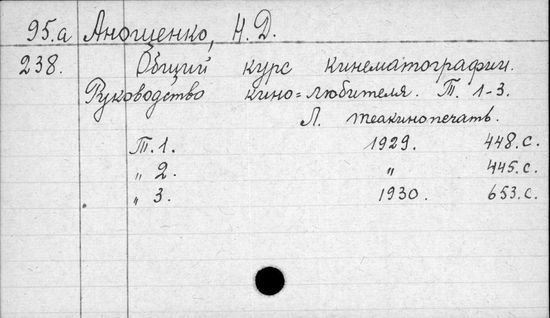 95.а Анощенко, Н.Д.
238. Общий курс кинематографии.
Руководство кино=любителя. Т. 1-3.
Л. теакинопечать.
Т. 1. 1929. 448.с.
„ 2. „ 445.с.
„ 3. 1930. 653.с.